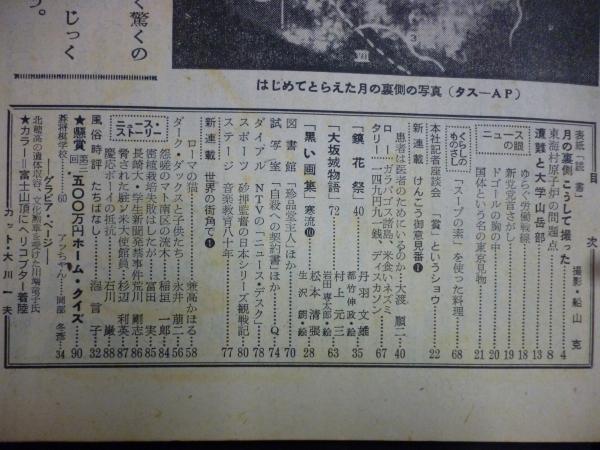 く驚くの
じっく
つ。
Ⅶ
3
はじめてとらえた月の裏側の写真(タス―AP)
目次
表紙「読書」 撮影・船山克
月の裏側こうして撮った 4
東海村原子炉の問題点 8
遭難と大学山岳部 13
ニュースの眼
ゆらぐ労働戦線 18
新党党首さがし 19
ドゴールの胸の中 20
国体という名の東京見物 21
くらしのものさし
「スープの素」を使った料理 68
本社記者座談会 「賞」というショウ 22
新連載 けんこう御意見番❶
患者は医者のためにいるのか・大渡順二 40
ロータリー
ガラパゴス諸島、米食いネズミ
一四九円九一銭、ディスカウソン 67
「鏡花祭」 40 丹羽文雄 都竹伸政・絵 35
「大坂城物語」 72 村上元三 岩田専太郎・絵 63
「黒い画集」 寒流⑩ 松本清張 生沢朗・絵 28
図書館 「珍品堂主人」ほか 70
試写室 「自殺への契約書」ほか Q 74
ダイアル NTVの「ニュース・デスク」 78
スポーツ 砂押監督の日本シリーズ観戦記 80
ステージ 音楽教育八十年 77
新連載 世界の街角で❶
ローマの猫 兼高かほる 58
ダーク・ダックスと子供たち 永井萠二 56
ニュース・ストーリー
怨嗟のマト南区の流木 稲垣一郎 84
密植栽培失敗はしたが 富田実 85
長崎大・学生新聞発禁事件 荒川剛志 86
脅された駐ソ米大使館員 杉辺利英 87
慶応ボーイの抵抗 石川巌 88
風俗時評 たちばなし 泡言子 32
★懸賞 第二回 五〇〇万円ホーム・クイズ 90
碁将棋学校 60 アッちゃん 岡部冬彦 34
―グラビア・ページ―
北穂高の遺体収容、文化勲章を受けた川端竜子氏
★カラー=富士山頂にヘリコプター着陸
カット・大川一夫